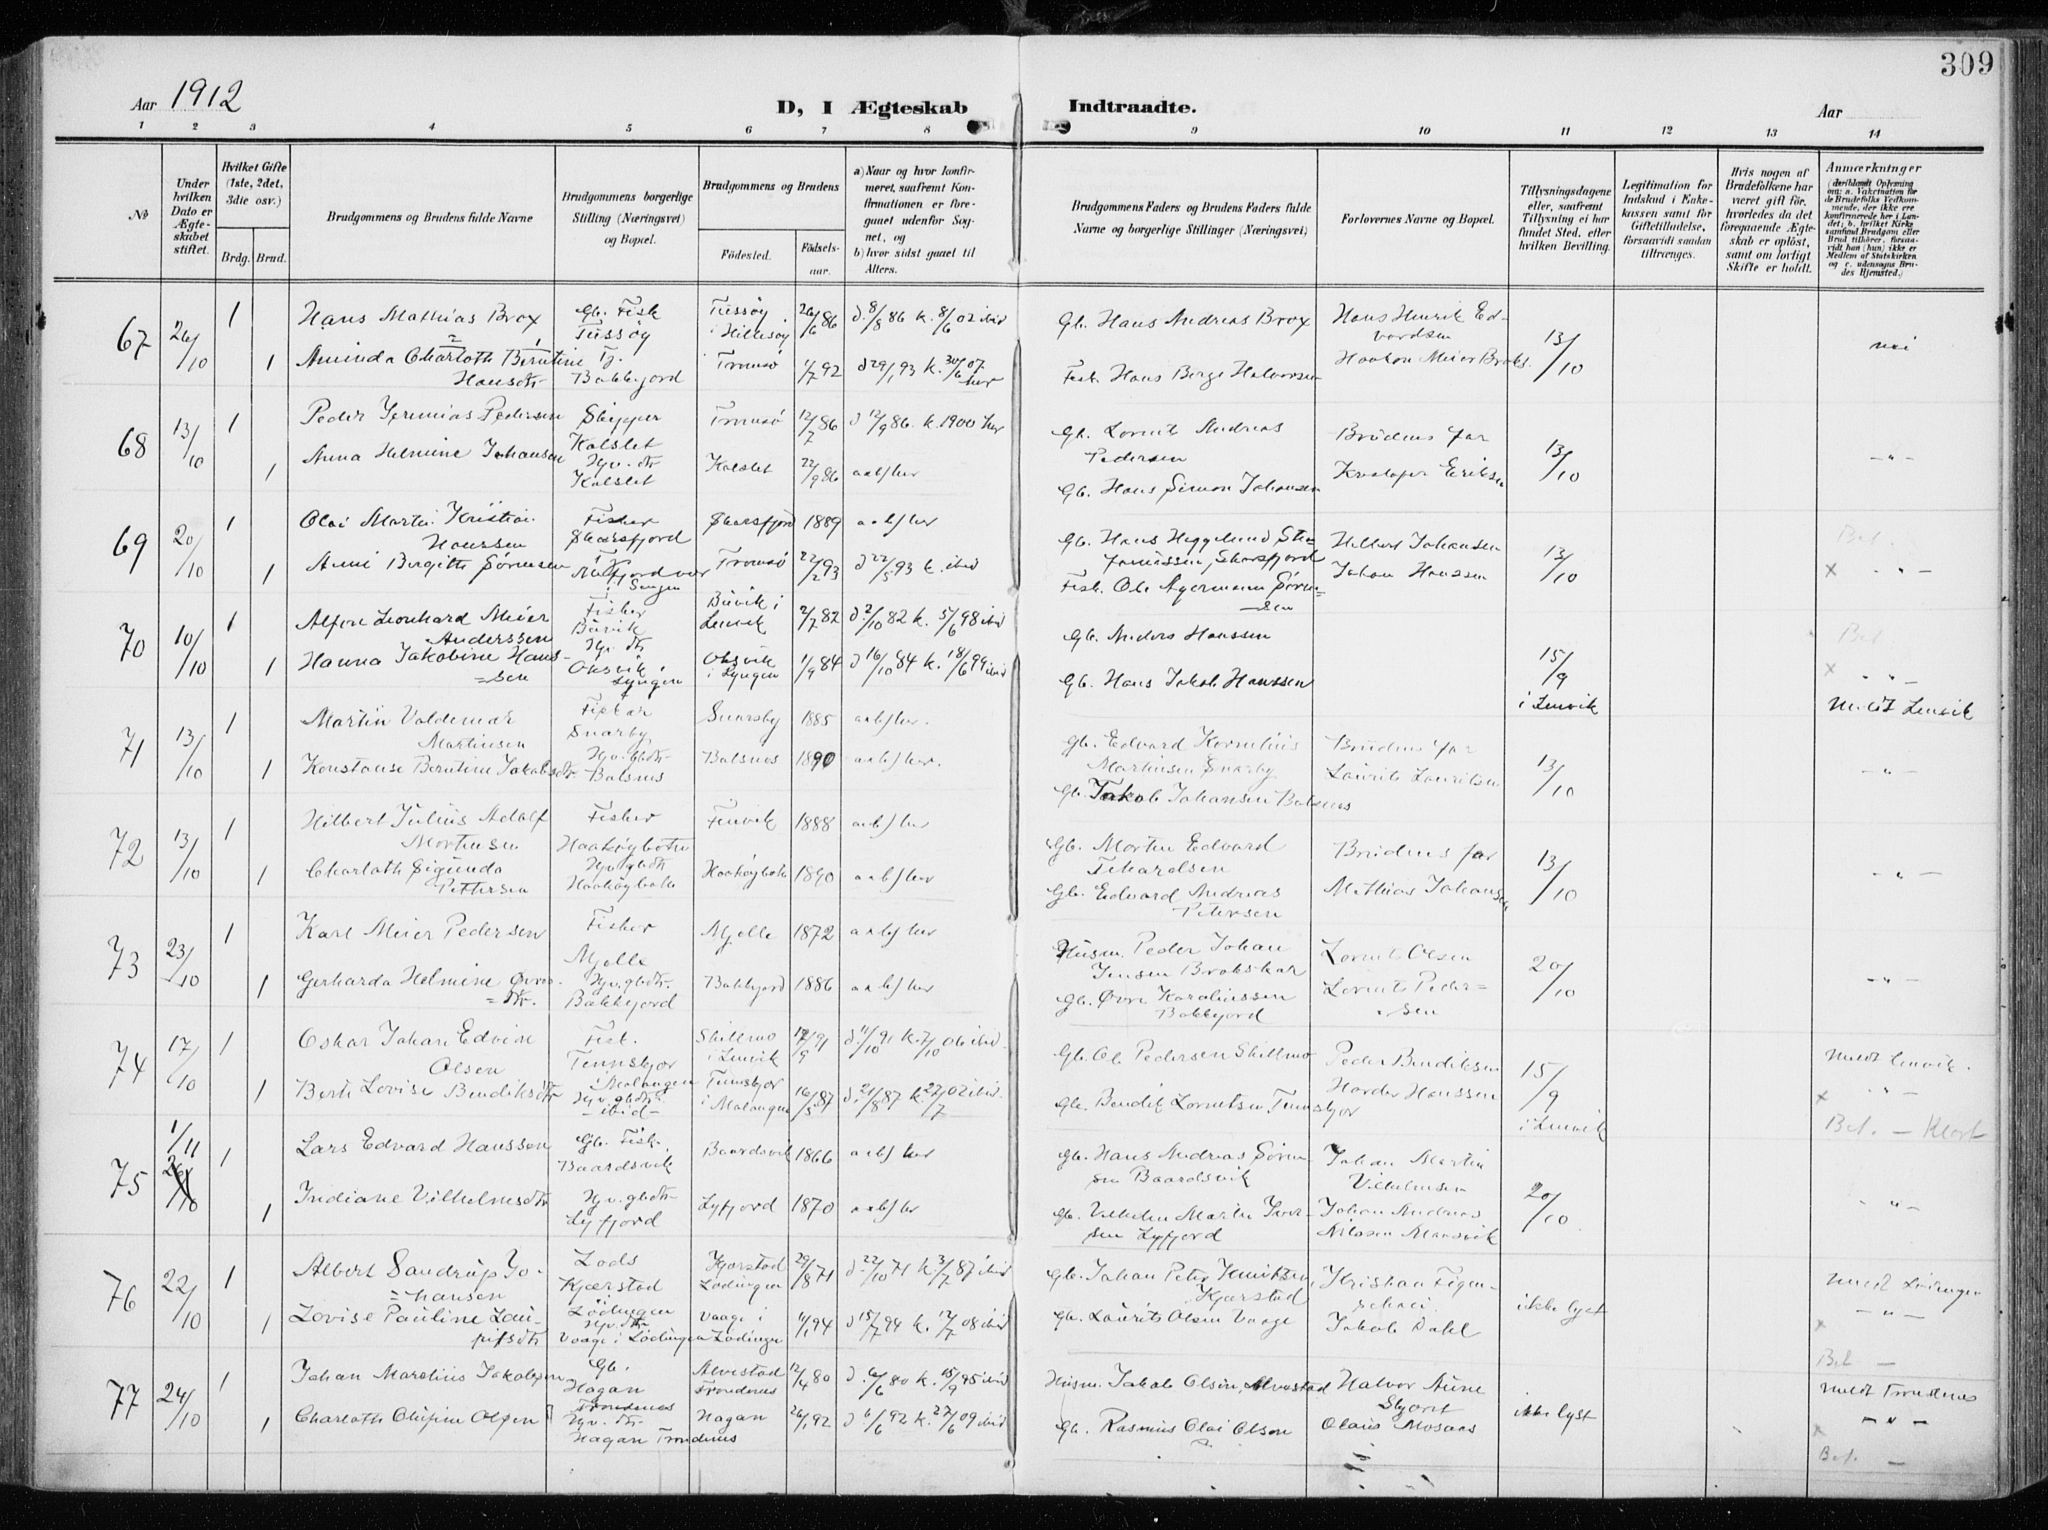 309
Aar 1912
D, I Ægteskab Indtraadte.
Aar
1 2 3 4 5 6 7 8 9 10 11 12 13 14
No
Under hvilken Dato er Ægteskabet stiftet.
Hvilket Gifte (1ste, 2det, 3die osv.)
Brdg. Brud.
Brudgommens og Brudens fulde Navne
Brudgommens borgerlige Stilling (Næringsvei) og Bopæl.
Brudgommens og Brudens
Födested.
Födselsaar.
a) Naar og hvor konfirmeret, saafremt Konfirmationen er foregaaet udenfor Sognet, og
b) hvor sidst gaaet til Alters.
Brudgommens Faders og Brudens Faders fulde Navne og borgerlige Stillinger (Næringsvei)
Forlovernes Navne og Bopæl.
Tillysningsdagene eller, saafremt Tillysning ei har fundet Sted, efter hvilken Bevilling.
Legitimation for Indskud i Enkekassen samt for Giftetilladelse, forsaavidt saadan tiltrænges.
Hvis nogen af Brudefolkene har været gift før, hvorledes da det foregaaende Ægteskab er oplöst, samt om lovligt Skifte er holdt.
Anmærkninger
(deriblandt Oplysning om: a. Vakcination for de Brudefolks Vedkommende, der ikke ere konfirmerede her i Landet; b. hvilket Kirkesamfund Brudgom eller Brud tilhörer, forsaavidt han (hun) ikke er Medlem af Statskirken og c. udensogns Brudes Hjemsted.)
67 26/10 1 Hans Mathias Brox Gb. Fisk Tussøy Tussøy i Hillesøy 26/6 86 d. 8/8 86 k. 8/6 02 ibid Gb. Hans Andreas Brox Hans Henrik Edvardsen 13/10 nei
1 Aminda Charloth Berntine Hansdtr Tj. Bakkejord Tromsø 1/7 92 d 29/1 93 k. 30/6 07 her Fisk. Hans Berge Halvorsen Haakon Meier Broks.
68 13/10 1 Peder Jeremias Pedersen Skipper Kalslet Tromsø 12/7 86 d 12/9 86. k. 1900 her Gb. Lornts Andreas Pedersen Brudens far 13/10 -"-
1 Anna Helmine Johansen Gv. dtr Kalslet Kalslet 22/9 86 a+b/ her Gb. Hans Simon Johansen Eriksen
69 20/10 1 Olai Martin Kristian Hanssen Fisker Skarsfjord Skarsfjord 1889 a+b/ her Gb. Hans Heggelund Skarsfjord Hilbert Johansen 13/10 Bet.
1 Bergith Sørensen Tromsø 22/2 93 d 22/5 93 k. ibid Fisk. Ole Agermann Sørensen Johan Hanssen x -"-
70 10/10 1 Alfon Leonhard Meier Anderssen Fisker Buvik Buvik i Lenvik 2/7 82 d 2/10 82 k. 5/6 98 ibid Gb. Anders Hanssen 15/9 i Lenvik Bet
1 Hanna Jakobine Hanssen Gv. dtr Oksvik i Lyngen Oksvik i Lyngen 1/9 84 d 16/10 84 k. 18/6 99 ibid Gb. Hans Jakob Hanssen x -"- Meldt Lenvik
71 13/10 1 Martin Valdemar Martinsen Fisker Snarby Snarby 1885 a+b/ her. Gb. Edvard Kornelius Martinsen Snarby Brudens far 13/10 -"-
1 Konstanse Berntine Jakobsdtr Gv. gbdtr. Balsnes Balsnes 1890 a+b/ her. Gb. Jakob Johansen Balsnes Laurits Lauritsen
72 13/10 1 Hilbert Julius Adolf Mortensen Fisker Haakøybotn Finvik 1888 a+b/ her Gb. Morten Edvard Brudens far 13/10 -"-
1 Charloth Sigunda Pettersen Gv. gbdtr Haakøybotn Haakøybotn 1890 a+b/ her Gb. Edvard Andreas Petersen Mathias Johansen
73 23/10 1 Karl Meier Pedersen Fisker Mjelle Mjelle 1872 a+b/ her Husm. Peder Johan Jensen Brokskar Lornts Olsen 20/10 -"-
1 Gerharda Helmine Øvresdtr. Gv. gbdtr. Bakkejord Bakkejord 1886 a+b/ her Gb. Øvre Karoliussen Bakkejord Lornts Pedersen
74 17/10 1 Oskar Johan Edvin Olsen Fisk. Tennskjer i Malangen Skillmo i Lenvik 17/9 91 d. 11/10 91 k. 7/10 06 ibid. Gb. Ol Pedersen Skillmo Peder Bendiksen 15/9 i Lenvik Meldt Lenvik.
1 Berth Lovise Bendiksdtr Gv. gbdtr. ibid Tennskjer i Malangen 16/5 87 d. 21/8 87 k. 27/7 02 ibid. Gb. Bendik Lorntsen Tennskjer Hanssen x -"- Bet. - Klart
75 1/11 26/10 1 Lars Edvard Hanssen Gb. Fisk. Baardsvik Baardsvik 1866 a+b/ her Gb. Hans Andreas Sørensen Baardsvik Johan Martin Vilhelmsen 20/10 -"-
1 Indiane Vilhelmsdtr Gv. gbdtr Lyfjord Lyfjord 1870 a+b/ her Gb. Vilhelm Martin Lyfjord Johan Andreas Nilssen Mansvik
76 22/10 1 Albert Sandrup Johansen Lods Kjærstad Lödingen Kjærstad Lödingen 29/8 71 d. 22/10 71 k. 3/7 87 ibid Gb. Johan Peter Knutsen, Kjærstad Kristian Figenschou. ikke lyst Meldt Lödingen
1 Lovise Pauline Lauritsdtr Gv. dtr. Vaage i Lödingen Vaage i Lödingen 1/1 94 d 15/7 94 k. 12/7 08 ibid Gb. Laurits Olsen Vaage Jakob Dahl x -"- Bet -
77 24/10 1 Johan Marelius Jakobsen Gb. Hagan Trondenes Alvestad Trondenes 12/4 80 d. 6/6 80 k. 15/9 95 ibid Husm. Jakob Olsen, Alvestad Halvor Aune ikke lyst Meldt Trondenes
1 Charloth Olufine Olsen Gv. dtr. Hagan Trondenes Hagan 26/1 92 d 6/6 92 k. 27/6 09 ibid Gb. Rasmus Olai Olsen Olaus Mosaas x -"- Bet. -